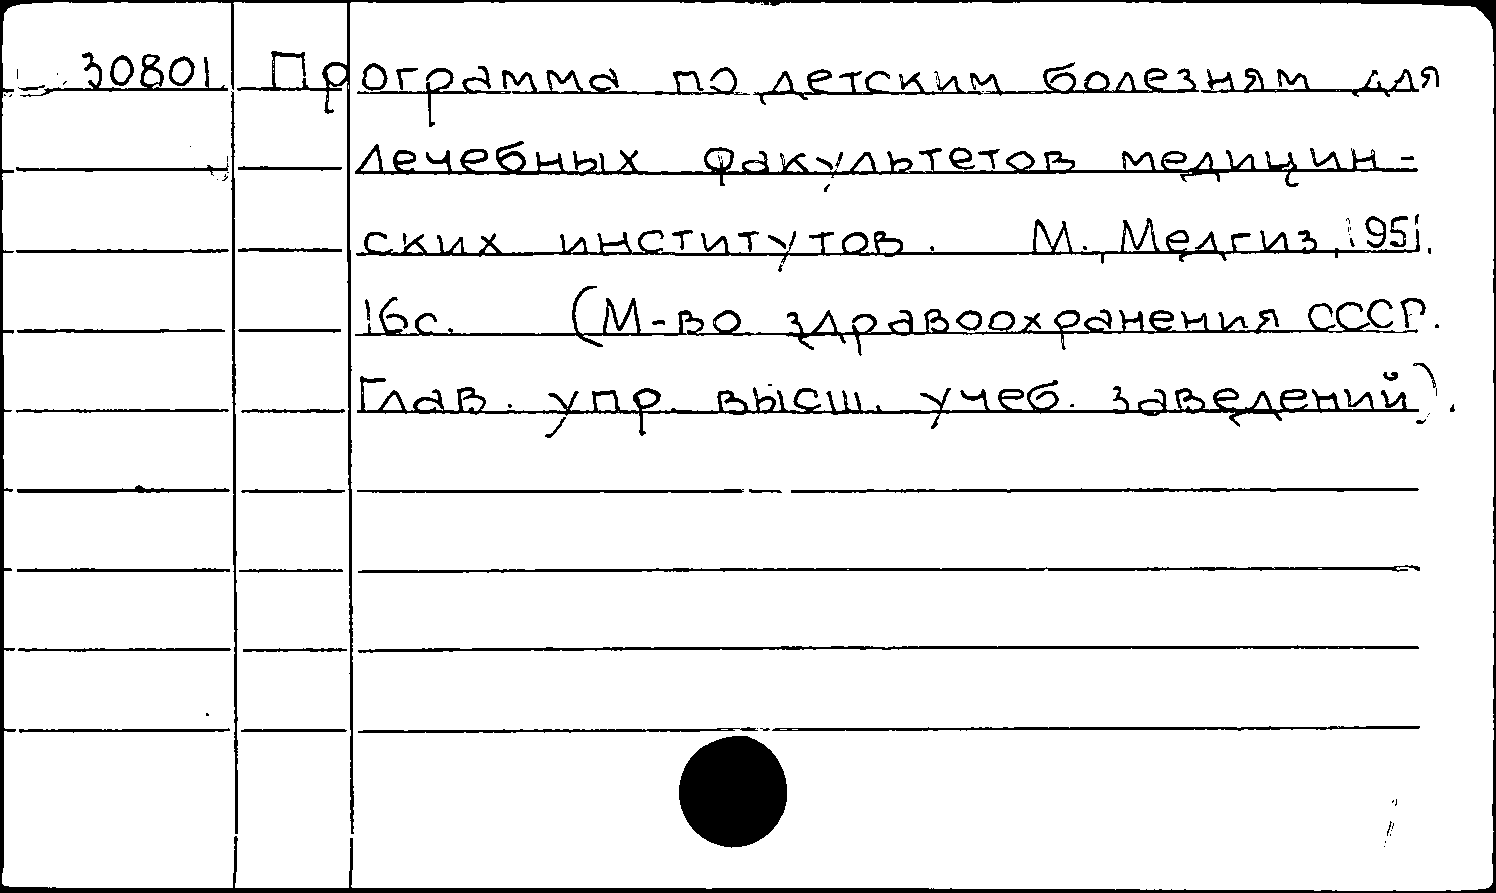 30801 Программа по детским болезням для
лечебных факультетов медицин-
ских институтов. М., Медгиз, 1951.
16с. (М-во здравоохранения СССР.
Глав. упр. высш. учеб. заведений).